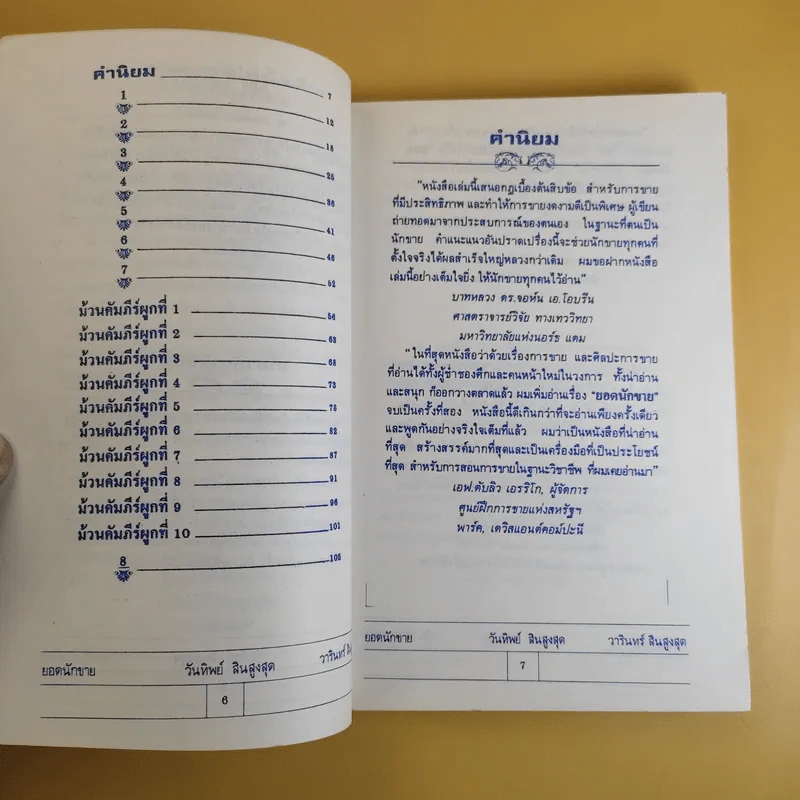 คำนิยม 7
1
12
2
18
3
25
4
36
5
41
6
46
7
52
ม้วนคัมภีร์ผูกที่ 1 56
ม้วนคัมภีร์ผูกที่ 2 63
ม้วนคัมภีร์ผูกที่ 3 68
ม้วนคัมภีร์ผูกที่ 4 73
ม้วนคัมภีร์ผูกที่ 5 78
ม้วนคัมภีร์ผูกที่ 6 82
ม้วนคัมภีร์ผูกที่ 7 87
ม้วนคัมภีร์ผูกที่ 8 91
ม้วนคัมภีร์ผูกที่ 9 96
ม้วนคัมภีร์ผูกที่ 10 101
8 105
ยอดนักขาย วันทิพย์ สินสูงสุด วารินทร์ สินสูง
6
คำนิยม
"หนังสือเล่มนี้เสนอกฎเบื้องต้นสิบข้อ สำหรับการขาย
ที่มีประสิทธิภาพ และทำให้การขายงดงามดีเป็นพิเศษ ผู้เขียน
ถ่ายทอดมาจากประสบการณ์ของตนเอง ในฐานะที่ตนเป็น
นักขาย คำแนะแนวอันปราดเปรื่องนี้จะช่วยนักขายทุกคนที่
ตั้งใจจริงได้ผลสำเร็จใหญ่หลวงกว่าเดิม ผมขอฝากหนังสือ
เล่มนี้อย่างเต็มใจยิ่ง ให้นักขายทุกคนไว้อ่าน"
บาทหลวง ดร.จอห์น เอ.โอบรีน
ศาสตราจารย์วิจัย ทางเทววิทยา
มหาวิทยาลัยแห่งนอร์ธ แดม
"ในที่สุดหนังสือว่าด้วยเรื่องการขาย และศิลปะการขาย
ที่อ่านได้ทั้งผู้ช่ำชองศึกและคนหน้าใหม่ในวงการ ทั้งน่าอ่าน
และสนุก ก็ออกวางตลาดแล้ว ผมเพิ่มอ่านเรื่อง "ยอดนักขาย"
จบเป็นครั้งที่สอง หนังสือนี้ดีเกินกว่าที่จะอ่านเพียงครั้งเดียว
และพูดกันอย่างจริงใจเต็มที่แล้ว ผมว่าเป็นหนังสือที่น่าอ่าน
ที่สุด สร้างสรรค์มากที่สุดและเป็นเครื่องมือที่เป็นประโยชน์
ที่สุด สำหรับการสอนการขายในฐานะวิชาชีพ ที่ผมเคยอ่านมา"
เอฟ.ดับลิว เอรริโก, ผู้จัดการ
ศูนย์ฝึกการขายแห่งสหรัฐฯ
พาร์ค, เดวิสแอนด์คอม์ปะนี
ยอดนักขาย วันทิพย์ สินสูงสุด วารินทร์ สินสูงสุด
7